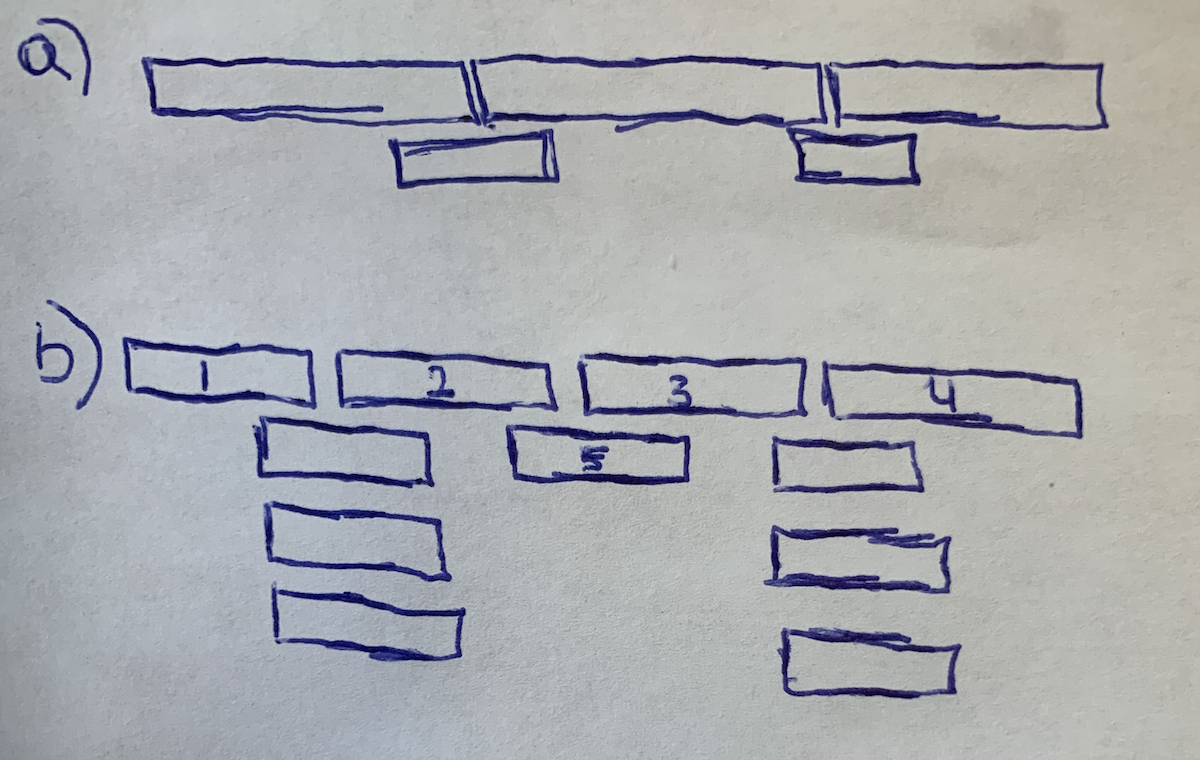 a)
b)
1 2 3 4
5